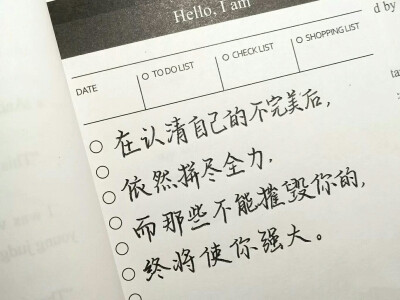 Hello, I am
d by
DATE
TO DO LIST
CHECK LIST
SHOPPING LIST
在认清自己的不完美后,
依然拼尽全力,
而那些不能摧毁你的,
终将使你强大。